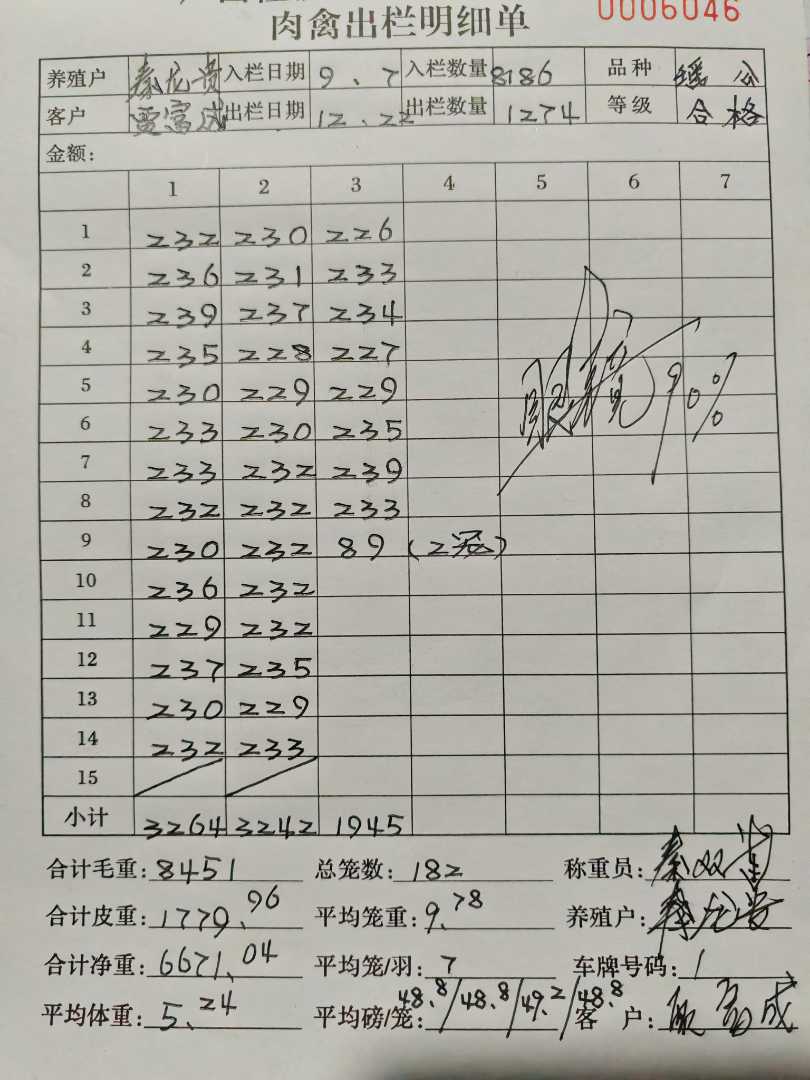 肉禽出栏明细单 0006046
养殖户 秦龙贵 入栏日期 9、7 入栏数量 8186 品种 瑶公
客户 贾富成 出栏日期 12、22 出栏数量 1274 等级 合格
金额：
1 2 3 4 5 6 7
1 232 230 226
2 236 231 233
3 239 237 234
4 235 228 227
5 230 229 229
6 233 230 235
7 233 232 239
8 232 232 233
9 230 232 89 (2笼)
10 236 232
11 229 232
12 237 235
13 230 229
14 232 233
15
90%
小计 3264 3242 1945
合计毛重：8451 总笼数：182 称重员：
合计皮重：1779.96 平均笼重：9.78 养殖户：秦龙贵
合计净重：6671.04 平均笼/羽：7 车牌号码：/
平均体重：5.24 平均磅/笼：48.8/48.8/49.2/48.8 客户：